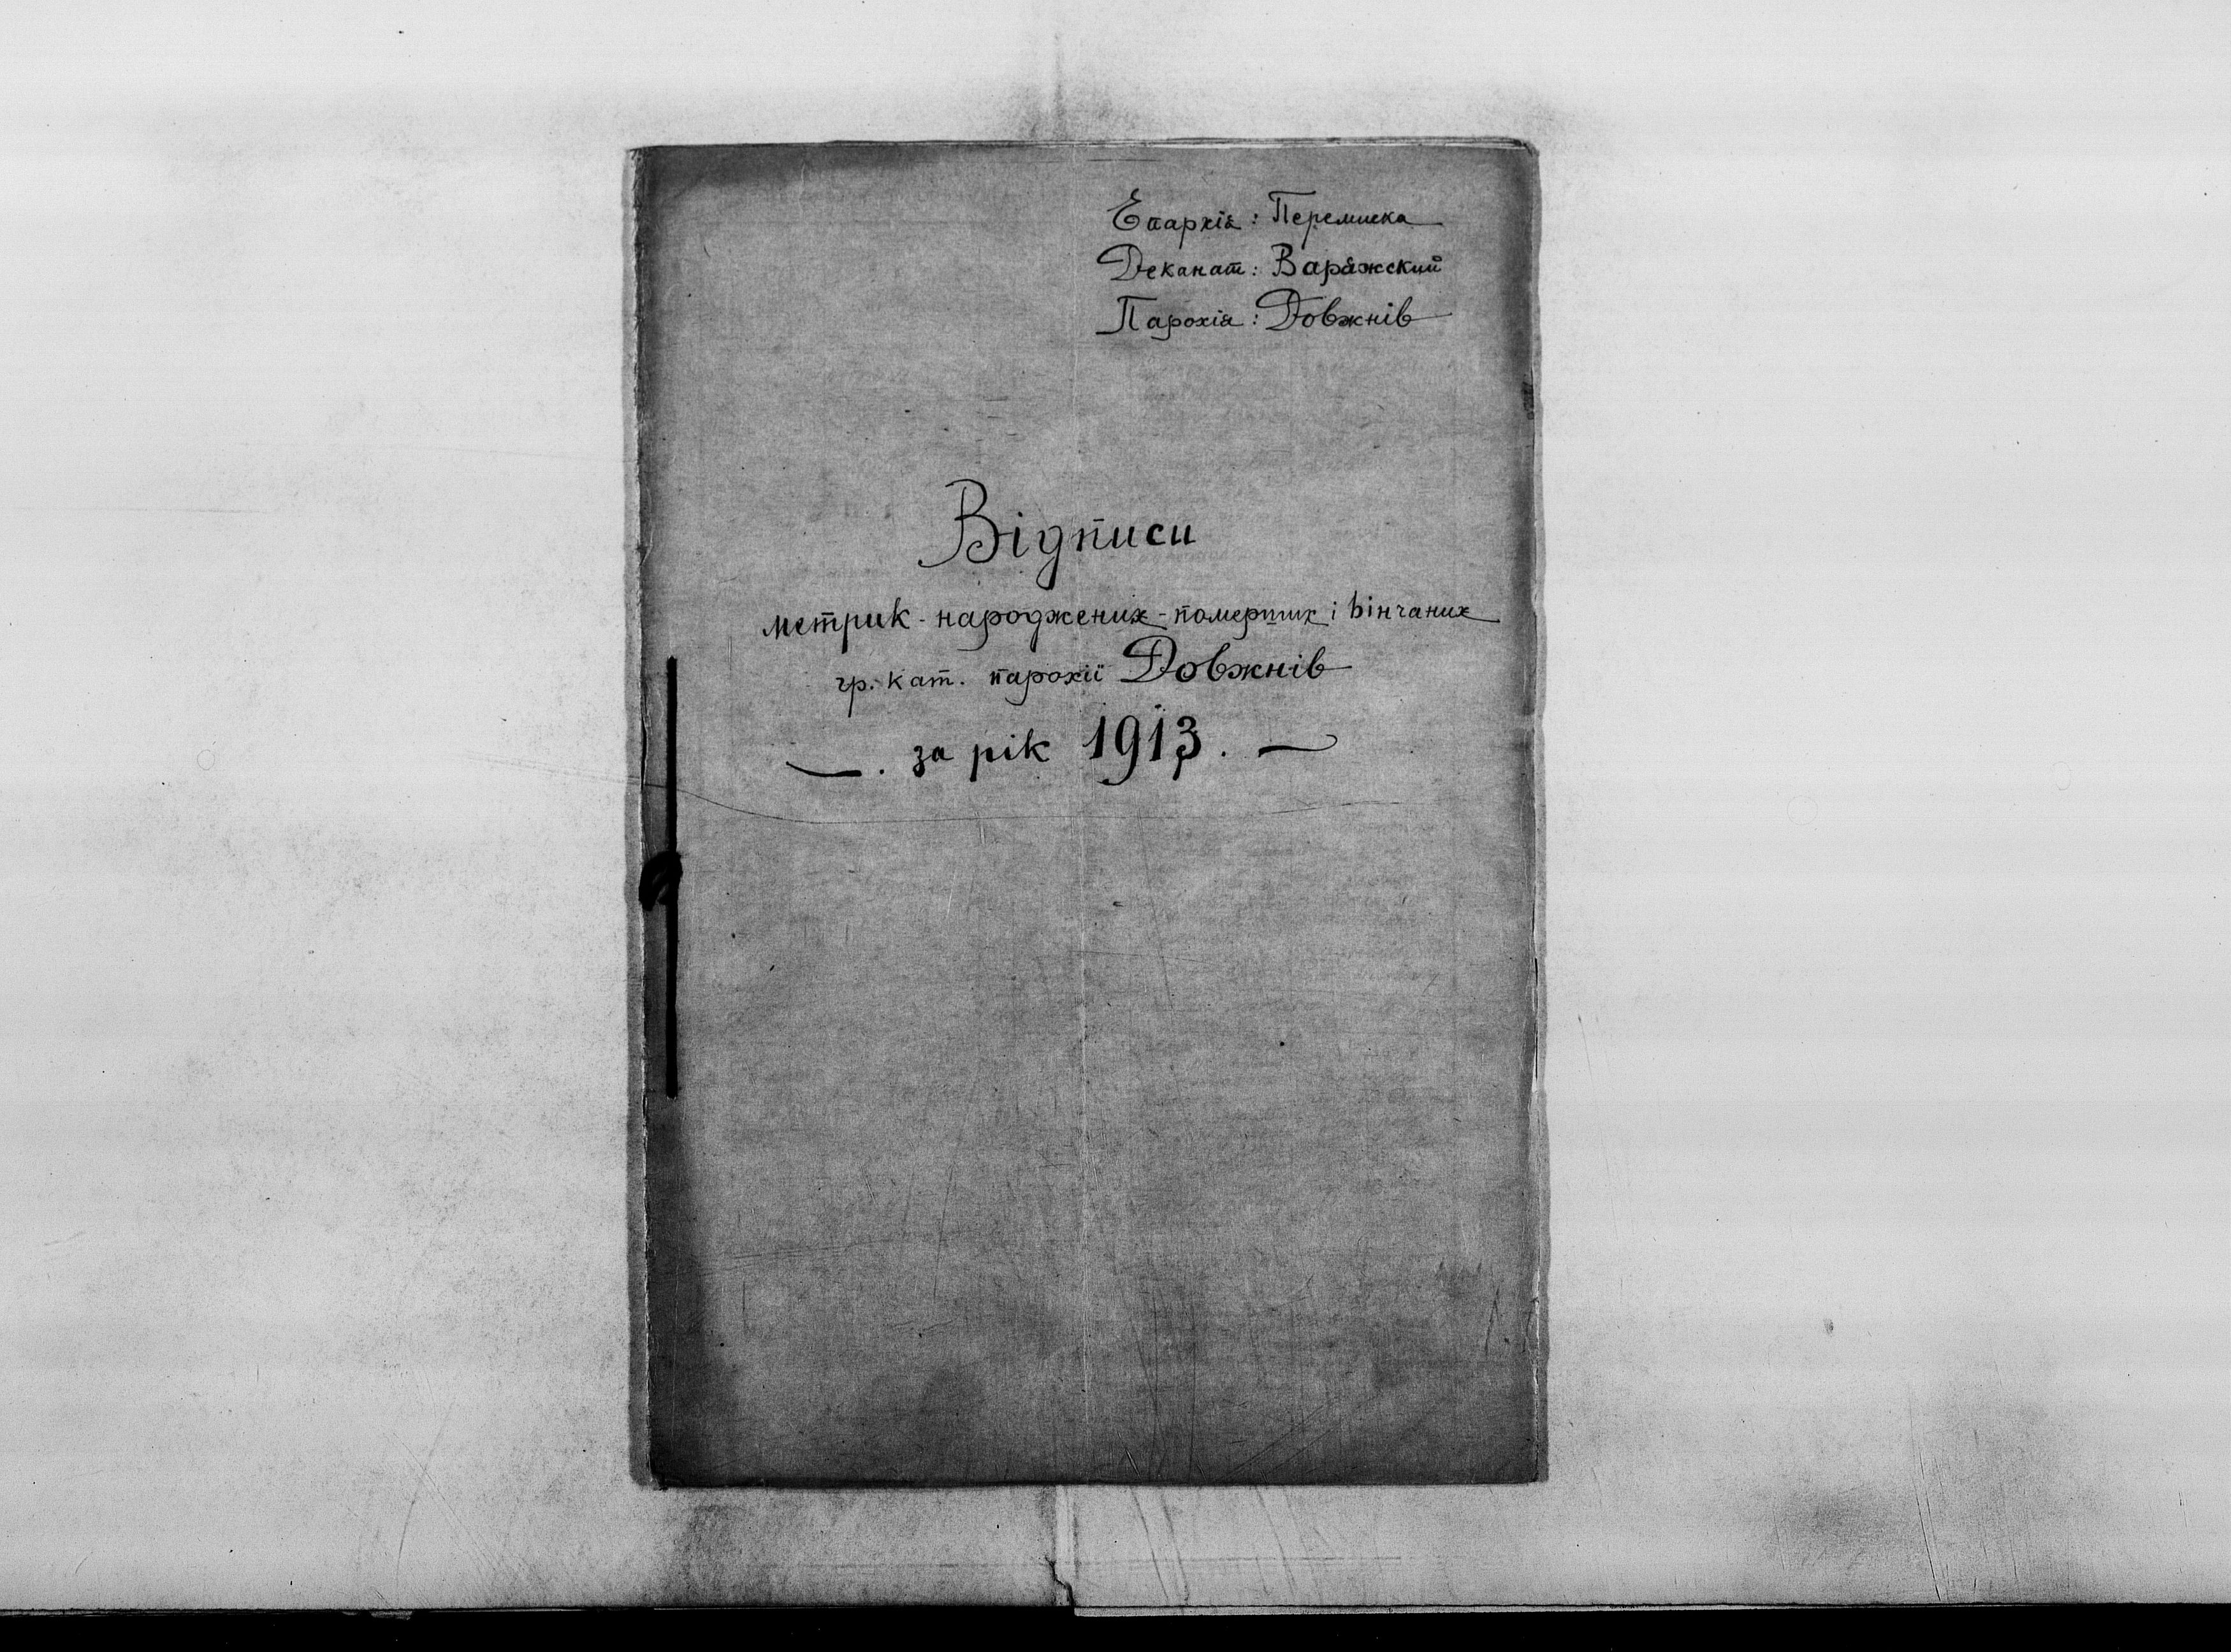 Епархія: Перемиска
Деканат: Варяжский
Парохія: Довжнів
Відписи
метрик - народжених - померших і вінчаних
гр. кат. парохії Довжнів
—. за рік 1913. —